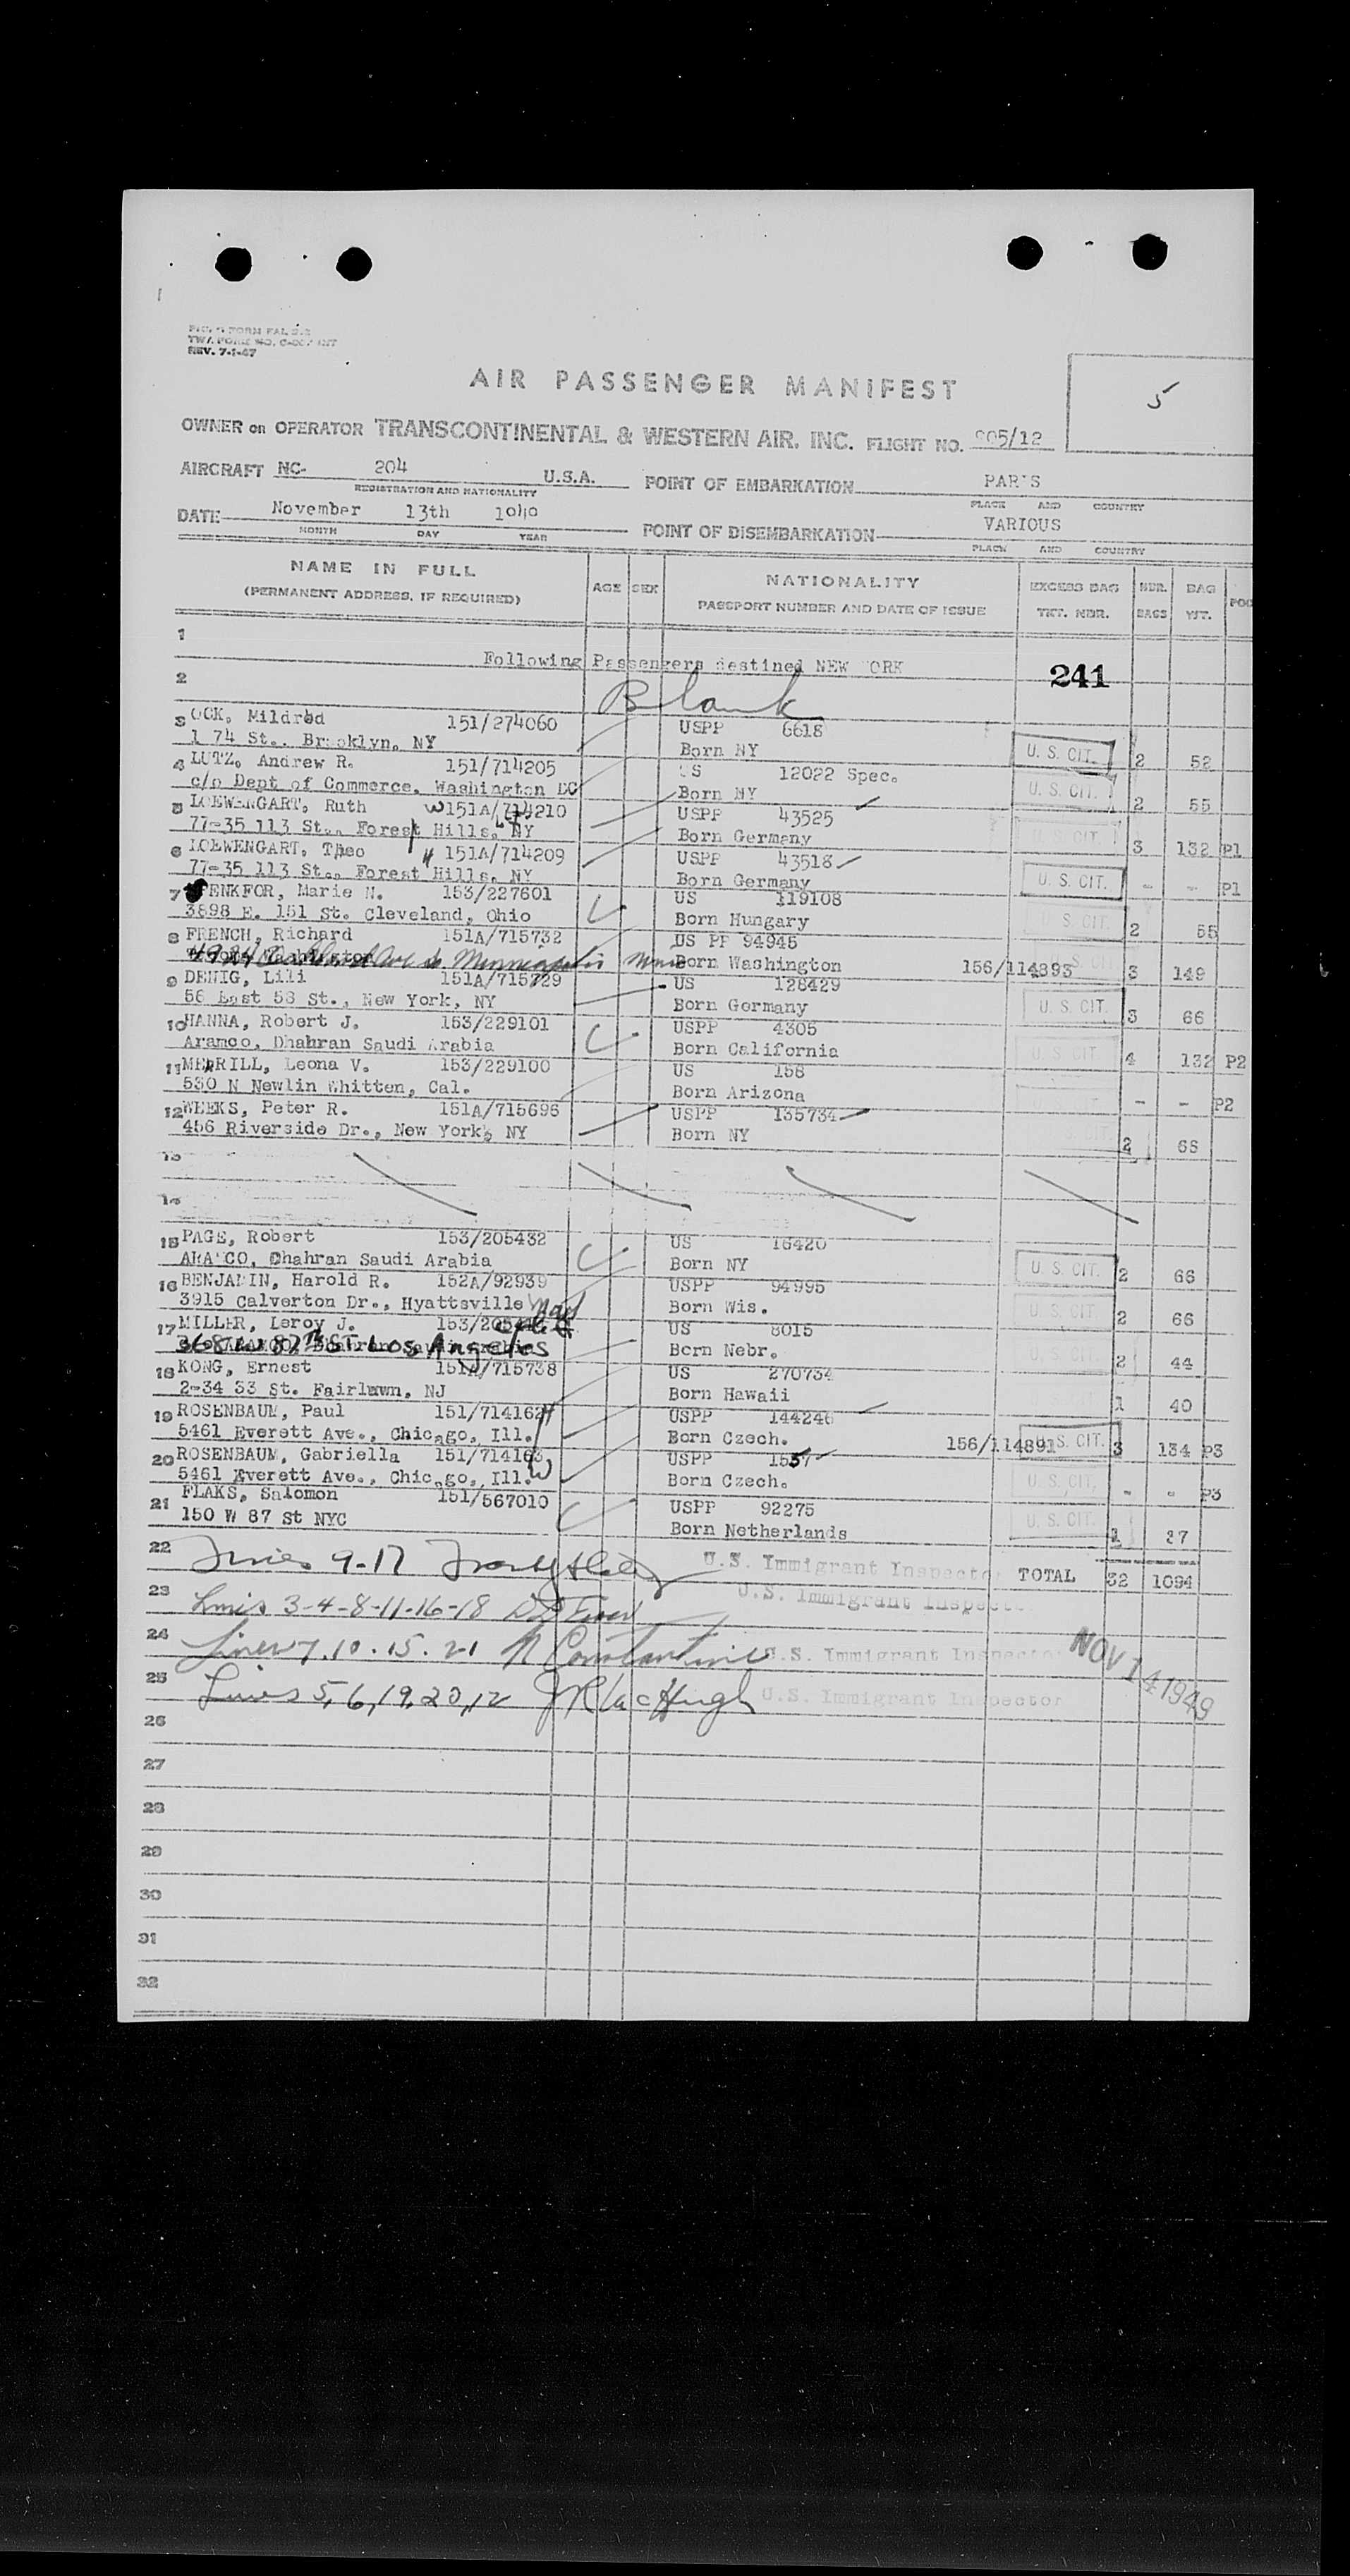 REV. 7-1-47
AIR PASSENGER MANIFEST
5
OWNER OR OPERATOR TRANSCONTINENTAL & WESTERN AIR, INC. FLIGHT NO. 905/12
AIRCRAFT NC- 204 U.S.A. POINT OF EMBARKATION PARIS
REGISTRATION AND NATIONALITY PLACE AND COUNTRY
DATE November 13th POINT OF DISEMBARKATION VARIOUS
MONTH DAY YEAR PLACE AND COUNTRY
NAME IN FULL AGE SEX NATIONALITY EXCESS BAG NBR. BAG
(PERMANENT ADDRESS, IF REQUIRED) PASSPORT NUMBER AND DATE OF ISSUE TKT. NBR. BAGS WT.
1
Following Passengers destined NEW YORK 241
2 Blank
3 OCK, Mildred 151/274060 USPP 6618
1 74 St., Brooklyn, NY Born NY U. S. CIT. 2 52
4 LUTZ, Andrew R. 151/714205 US 12022 Spec.
c/o Dept of Commerce, Washington DC Born NY U. S. CIT. 2 55
5 LOEWENGART, Ruth W 151A/714210 USPP 43525
77-35 113 St., Forest Hills, NY Born Germany U. S. CIT. 3 132 P1
6 LOEWENGART, Theo H 151A/714209 USPP 43518
77-35 113 St., Forest Hills, NY Born Germany U. S. CIT. - - P1
7 ENKFOR, Marie N. 153/227601 US 119108
3898 E. 151 St. Cleveland, Ohio Born Hungary U. S. CIT. 2 55
8 FRENCH, Richard 151A/715732 US PP 94946
Minneapolis Minn Born Washington 156/114893 U. S. CIT. 3 149
9 DENIG, Lili 151A/715729 US 128429
56 East 58 St., New York, NY Born Germany U. S. CIT. 3 66
10 HANNA, Robert J. 153/229101 USPP 4305
Aramco, Dhahran Saudi Arabia Born California U. S. CIT. 4 132 P2
11 MERRILL, Leona V. 153/229100 US 158
530 N Newlin Whitten, Cal. Born Arizona U. S. CIT. - - P2
12 WEEKS, Peter R. 151A/715696 USPP 135734
456 Riverside Dr., New York, NY Born NY U. S. CIT. 2 66
13
14
15 PAGE, Robert 153/205432 US 16420
ARAMCO, Dhahran Saudi Arabia Born NY U. S. CIT. 2 66
16 BENJAMIN, Harold R. 152A/92939 USPP 94995
3915 Calverton Dr., Hyattsville Mary Born Wis. U. S. CIT. 2 66
17 MILLER, Leroy J. US 8015
368 W 82nd ST. Los Angeles Born Nebr. U. S. CIT. 2 44
18 KONG, Ernest 151A/715738 US 270734
2-34 33 St. Fairlawn, NJ Born Hawaii 1 40
19 ROSENBAUM, Paul 151/714162 H USPP 144246
5461 Everett Ave., Chicago, Ill. Born Czech. 156/114891 U. S. CIT. 3 134 P3
20 ROSENBAUM, Gabriella 151/714163 W USPP 1557
5461 Everett Ave., Chicago, Ill. Born Czech. U. S. CIT. - - P3
21 FLAKS, Salomon 151/567010 USPP 92275
150 W 87 St NYC Born Netherlands U. S. CIT. 1 37
22 Lines 9-17 U.S. Immigrant Inspector TOTAL 32 1094
23 Lines 3-4-8-11-16-18 U.S. Immigrant Inspector
24 Lines 7.10.15.21 N Constantine U.S. Immigrant Inspector NOV 14 1949
25 Lines 5,6,19,20,12 U.S. Immigrant Inspector
26
27
28
29
30
31
32